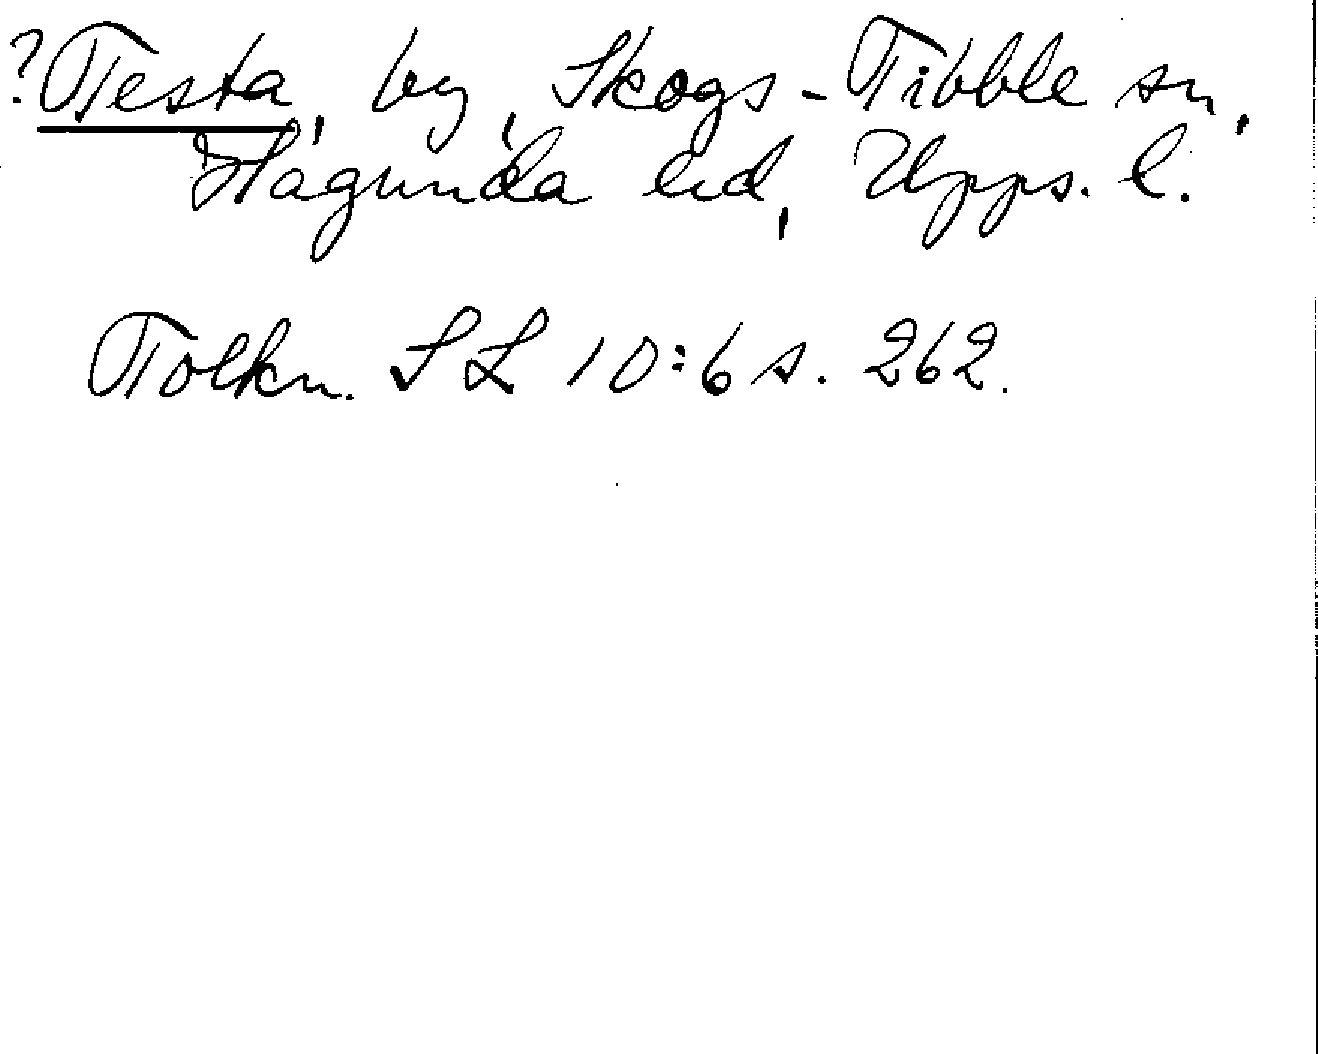 ?Testa, by, Skogs-Tibble sn,
Hagunda hd, Upps. l.
Tolkn. SL 10:6 s. 262.